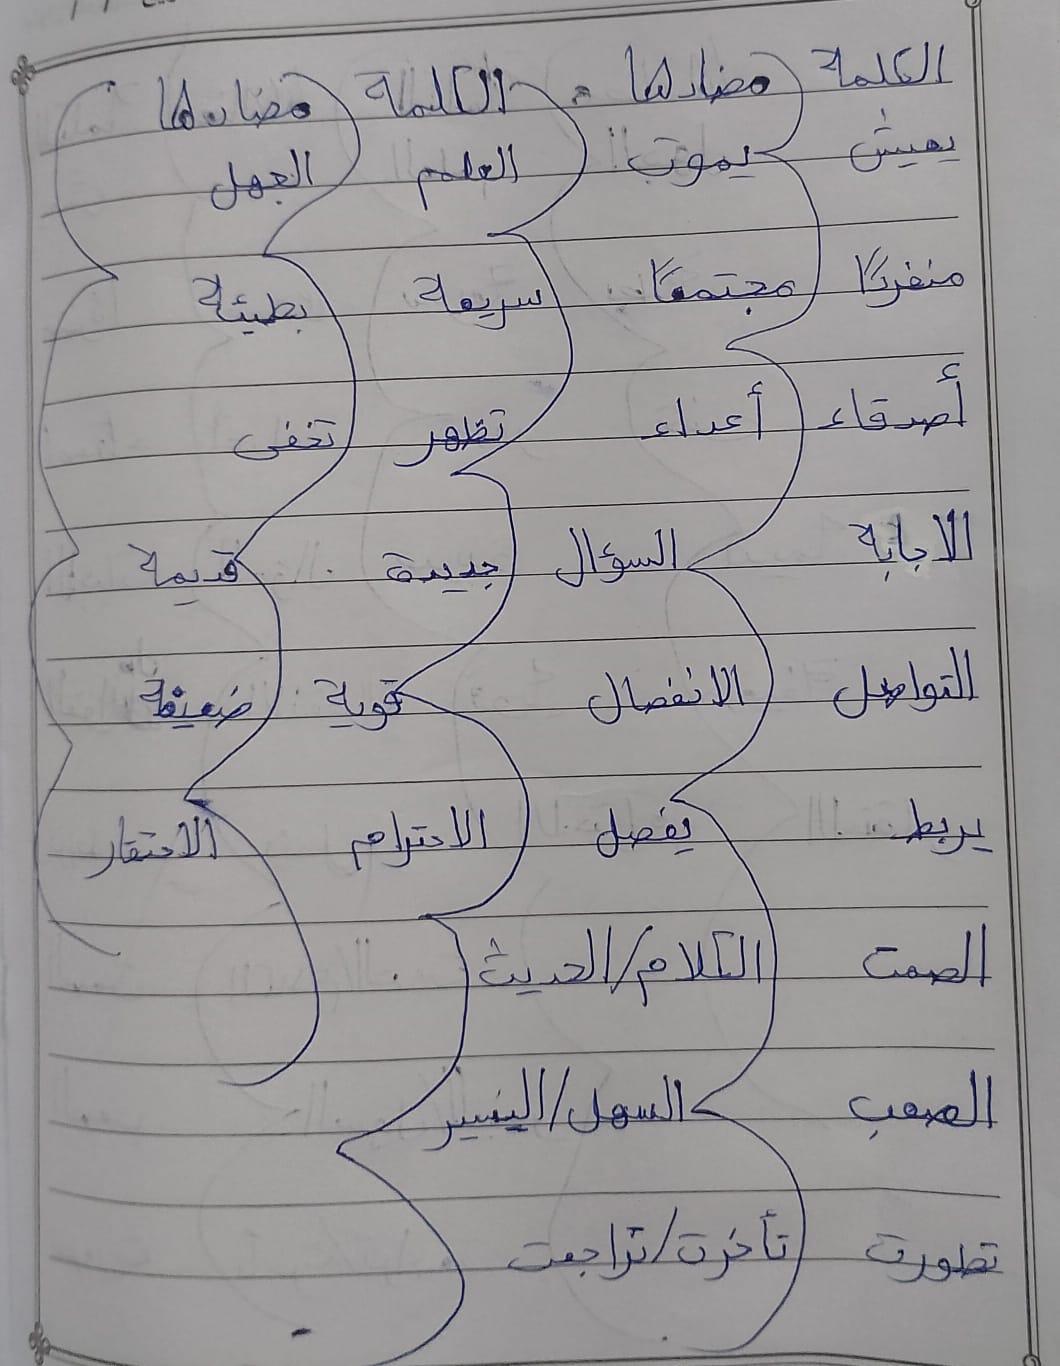 الكلمة مضادها الكلمة مضادها
يعيش يموت العلم الجهل
منفردًا مجتمعًا سريعة بطيئة
أصدقاء أعداء تظهر تخفى
الاجابة السؤال جديدة قديمة
التواصل الانفصال قوية ضعيفة
يربط يفصل الاحترام الاحتقار
الصمت الكلام/الحديث
الصعب السهل/اليسير
تطورت تأخرت/تراجعت